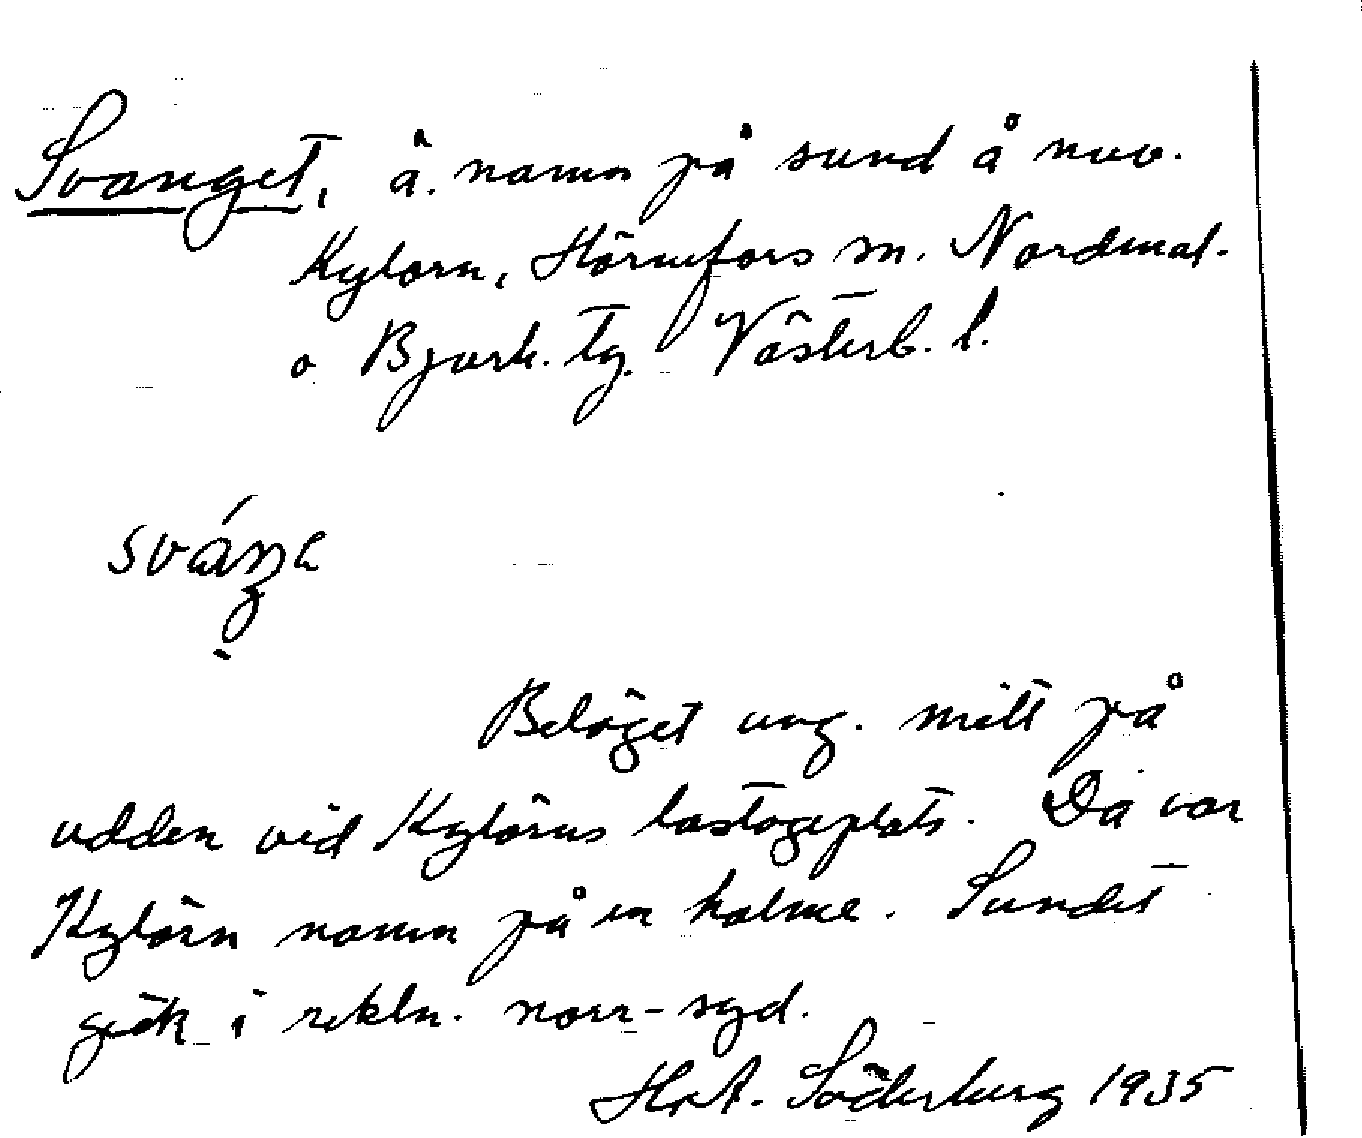 Svanget, ä. namn på sund å nuv.
Kylörn, Hörnefors sn. Nordmal.
o Bjurh. tg. Västerb. l.
Beläget ung. mitt på
udden vid Kylörns lastageplats. Då var
Kylörn namn på en holme. Sundet
gick i riktn. norr-syd.
Hrt. Söderberg 1935